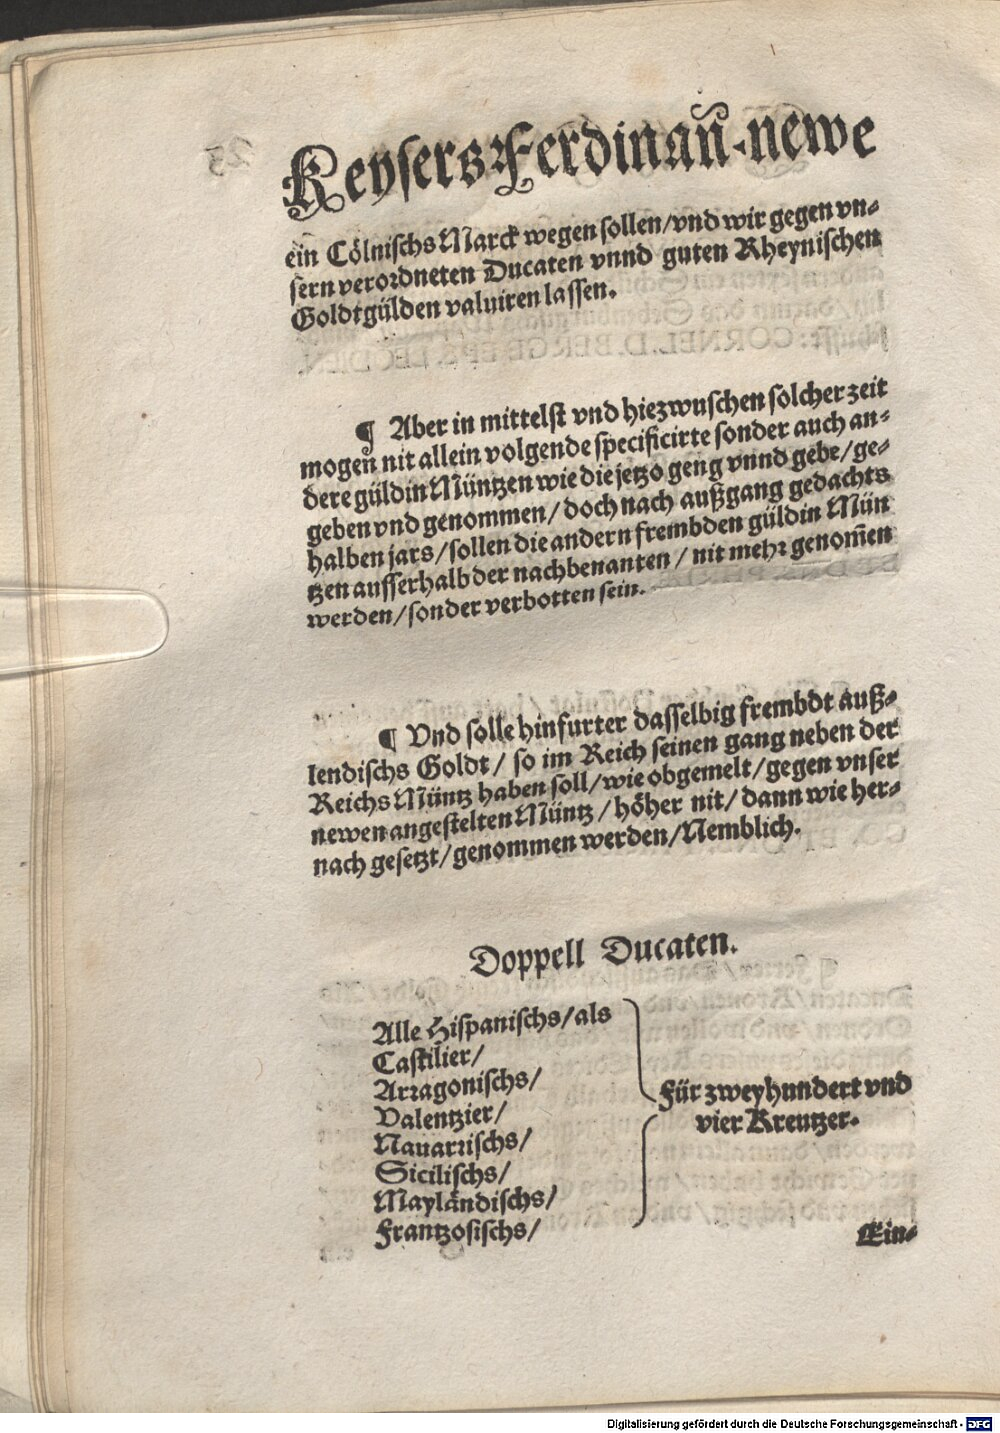 Keysers Ferdinan̄. newe
ein Cölnischs Marck wegen sollen/vnd wir gegen vn-
sern verordneten Ducaten vnnd guten Rheynischen
Goldtgülden valuiren lassen.
¶ Aber in mittelst vnd hiezwuschen solcher zeit
mogen nit allein volgende specificirte sonder auch an-
dere güldin Müntzen wie die jetzo geng vnnd gebe/ge-
geben vnd genommen/doch nach außgang gedachts
halben jars/sollen die andern frembden güldin Mün
tzen ausserhalb der nachbenanten/nit mehr genom̄en
werden/sonder verbotten sein.
¶ Vnd solle hinfurter dasselbig frembdt auß-
lendischs Goldt/ so im Reich seinen gang neben der
Reichs Müntz haben soll/wie obgemelt/gegen vnser
newen angestelten Müntz/höher nit/dann wie her-
nach gesetzt/genommen werden/Nemblich.
Doppell Ducaten.
Alle Hispanischs/als
Castilier/
Arragonischs/
Valentzier/
Nauarrischs/
Sicilischs/
Mayländischs/
Frantzosischs/
Für zweyhundert vnd
vier Kreutzer.
Ein-
Digitalisierung gefördert durch die Deutsche Forschungsgemeinschaft - DFG